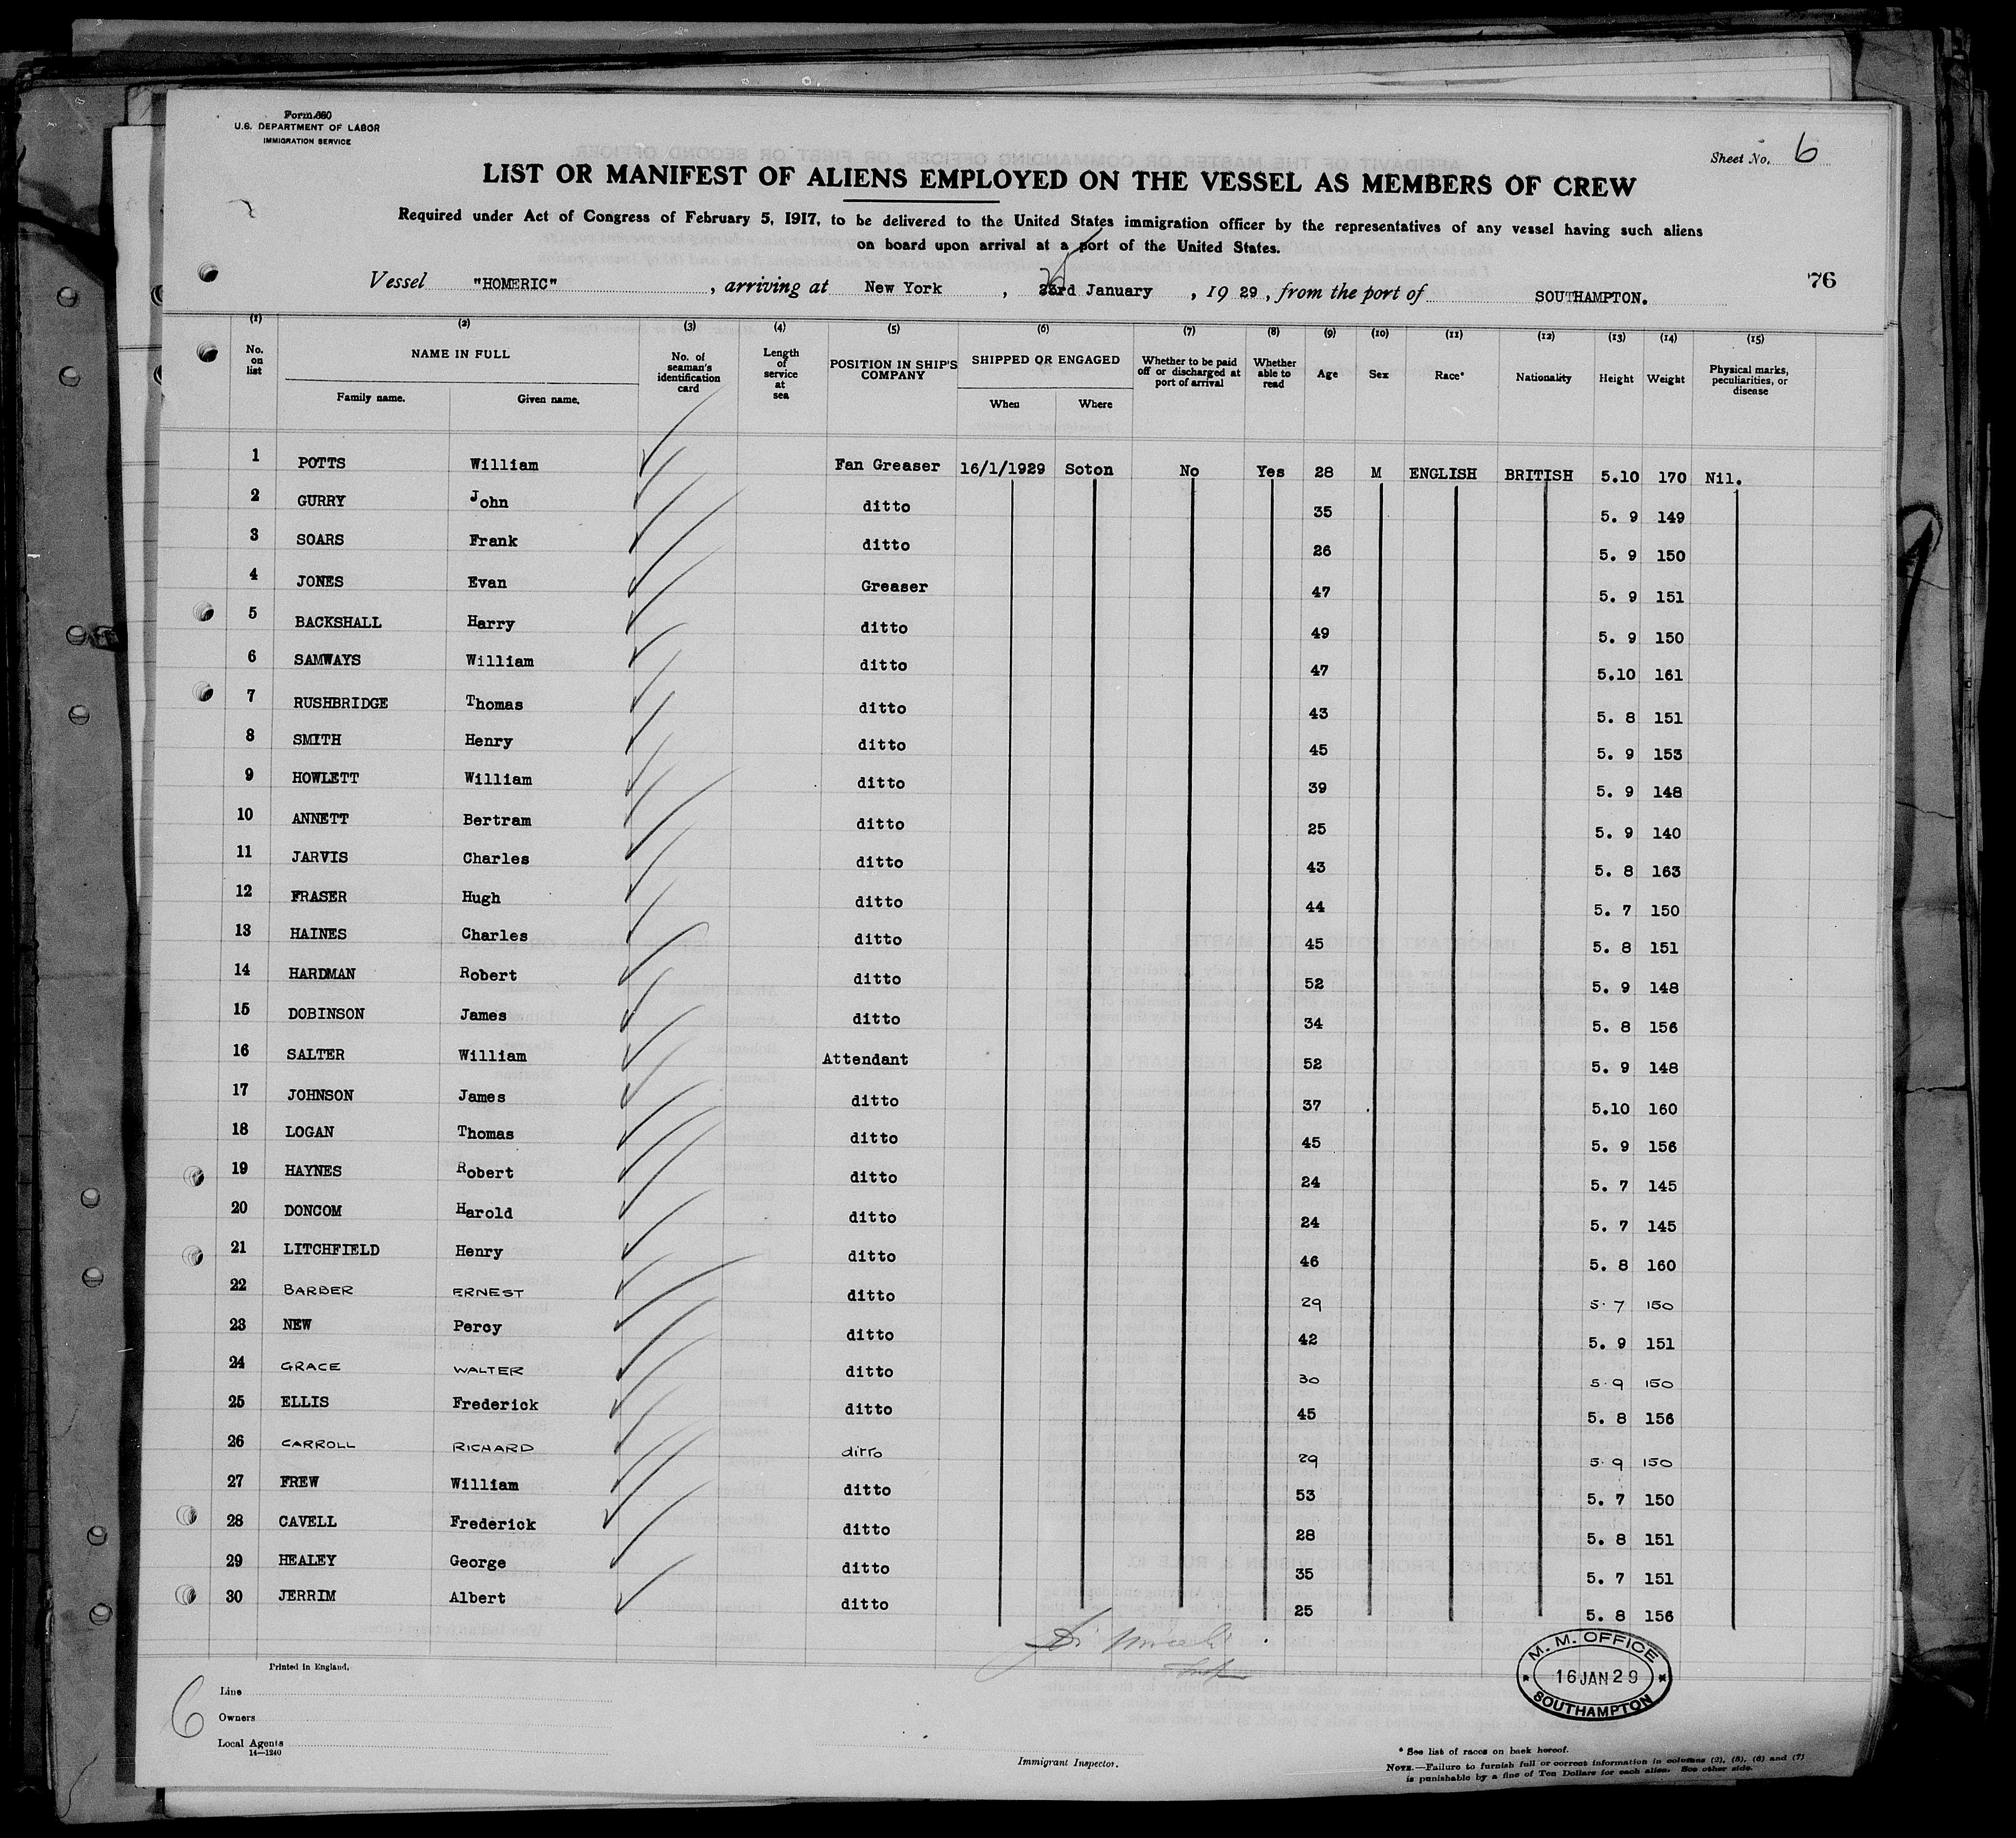 Form 680
U.S. DEPARTMENT OF LABOR
IMMIGRATION SERVICE
Sheet No. 6
LIST OR MANIFEST OF ALIENS EMPLOYED ON THE VESSEL AS MEMBERS OF CREW
Required under Act of Congress of February 5, 1917, to be delivered to the United States immigration officer by the representatives of any vessel having such aliens
on board upon arrival at a port of the United States.
Vessel "HOMERIC", arriving at New York, 23rd January, 1929, from the port of SOUTHAMPTON.
76
(1) (2) (3) (4) (5) (6) (7) (8) (9) (10) (11) (12) (13) (14) (15)
No. on list NAME IN FULL Family name. Given name. No. of seaman's identification card Length of service at sea POSITION IN SHIP'S COMPANY SHIPPED OR ENGAGED When Where Whether to be paid off or discharged at port of arrival Whether able to read Age Sex Race* Nationality Height Weight Physical marks, peculiarities, or disease
1 POTTS William Fan Greaser 16/1/1929 Soton No Yes 28 M ENGLISH BRITISH 5.10 170 Nil.
2 GURRY John ditto 35 5. 9 149
3 SOARS Frank ditto 26 5. 9 150
4 JONES Evan Greaser 47 5. 9 151
5 BACKSHALL Harry ditto 49 5. 9 150
6 SAMWAYS William ditto 47 5.10 161
7 RUSHBRIDGE Thomas ditto 43 5. 8 151
8 SMITH Henry ditto 45 5. 9 153
9 HOWLETT William ditto 39 5. 9 148
10 ANNETT Bertram ditto 25 5. 9 140
11 JARVIS Charles ditto 43 5. 8 163
12 FRASER Hugh ditto 44 5. 7 150
13 HAINES Charles ditto 45 5. 8 151
14 HARDMAN Robert ditto 52 5. 9 148
15 DOBINSON James ditto 34 5. 8 156
16 SALTER William Attendant 52 5. 9 148
17 JOHNSON James ditto 37 5.10 160
18 LOGAN Thomas ditto 45 5. 9 156
19 HAYNES Robert ditto 24 5. 7 145
20 DONCOM Harold ditto 24 5. 7 145
21 LITCHFIELD Henry ditto 46 5. 8 160
22 BARBER ERNEST ditto 29 5. 7 150
23 NEW Percy ditto 42 5. 9 151
24 GRACE WALTER ditto 30 5. 9 150
25 ELLIS Frederick ditto 45 5. 8 156
26 CARROLL RICHARD ditto 29 5. 9 150
27 FREW William ditto 53 5. 7 150
28 CAVELL Frederick ditto 28 5. 8 151
29 HEALEY George ditto 35 5. 7 151
30 JERRIM Albert ditto 25 5. 8 156
M. M. OFFICE
16 JAN 29
SOUTHAMPTON
Printed in England.
6
Line
Owners
Local Agents
14—1240
Immigrant Inspector.
* See list of races on back hereof.
NOTE.—Failure to furnish full or correct information in columns (2), (5), (6) and (7)
is punishable by a fine of Ten Dollars for each alien. See other side.